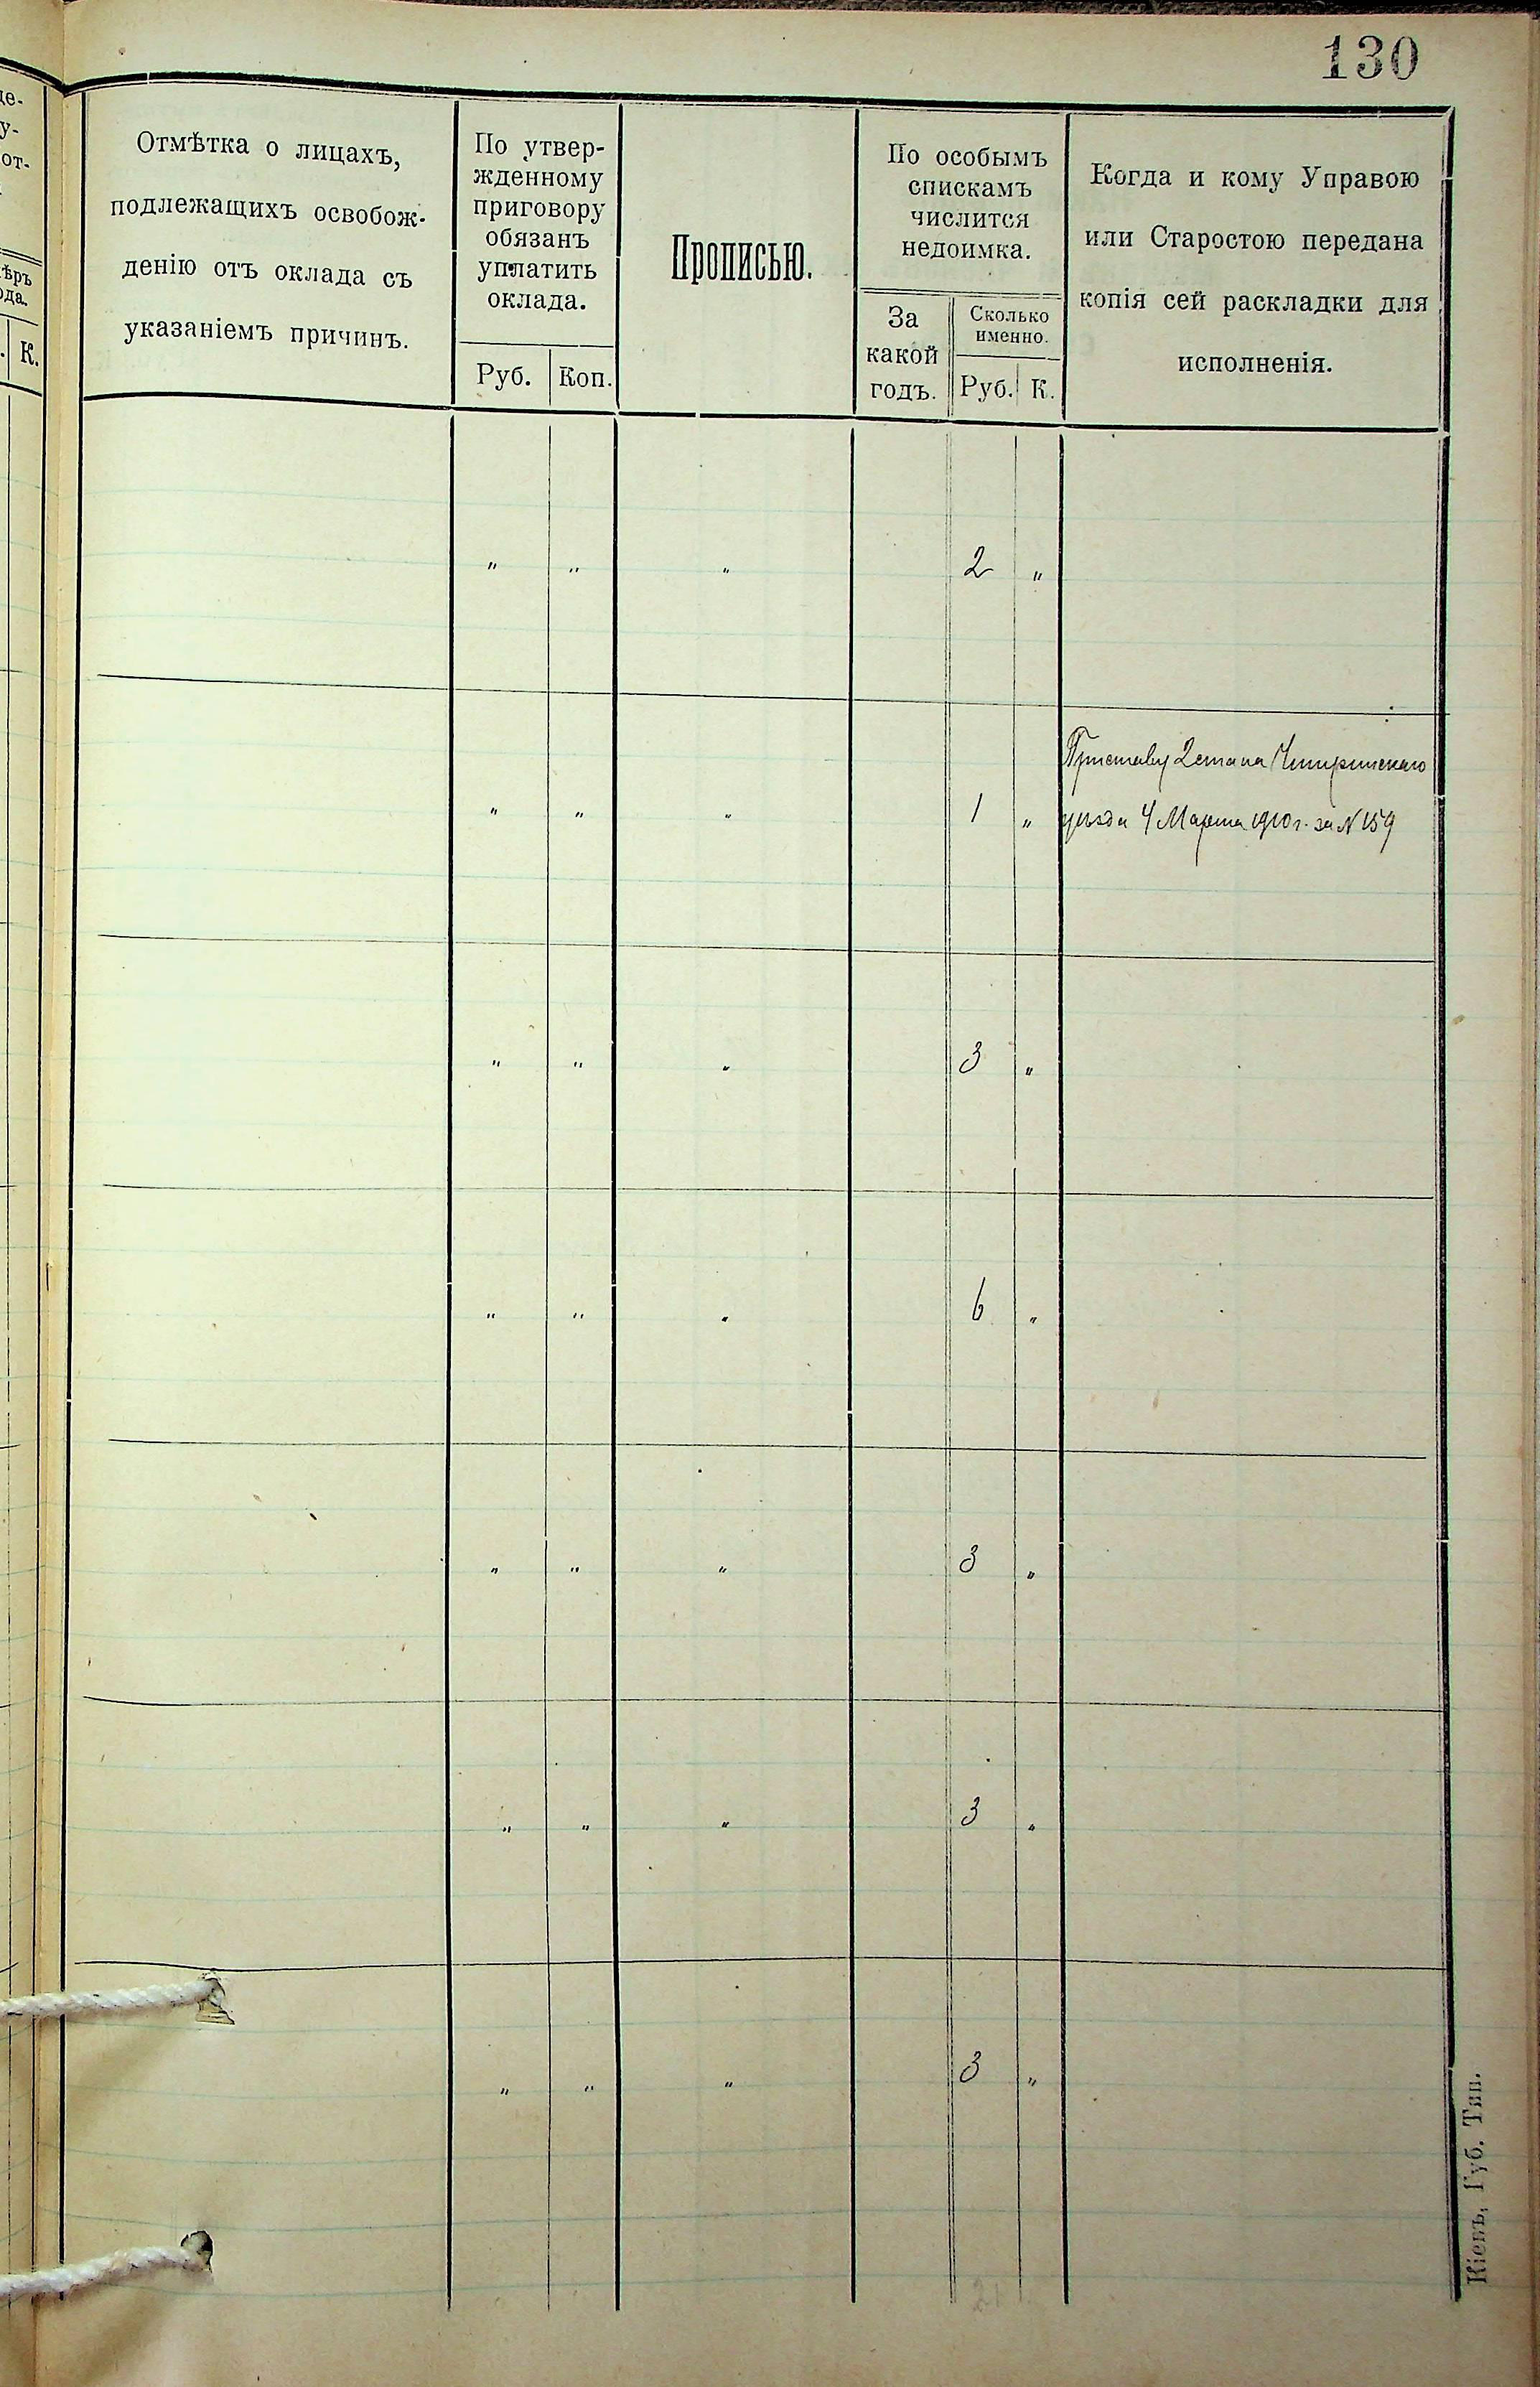 130
де-
у-
от-
ѣръ
ода.
К.
Отмѣтка о лицахъ,
подлежащихъ освобож-
денію отъ оклада съ
указаніемъ причинъ.
По утвер-
жденному
приговору
обязанъ
уплатить
оклада.
Руб. Коп.
Прописью.
По особымъ
спискамъ
числится
недоимка.
За
какой
годъ.
Сколько
именно.
Руб. К.
Когда и кому Управою
или Старостою передана
копія сей раскладки для
исполненія.
" " " 2 "
Приставу 2 стана Чигиринскаго
" " " 1 " уѣзда 4 Марта 1910 г. за № 159
" " " 3 "
" " " 6 "
" " " 3 "
" " " 3 "
" " " 3 "
21
Кіевъ, Губ. Тип.